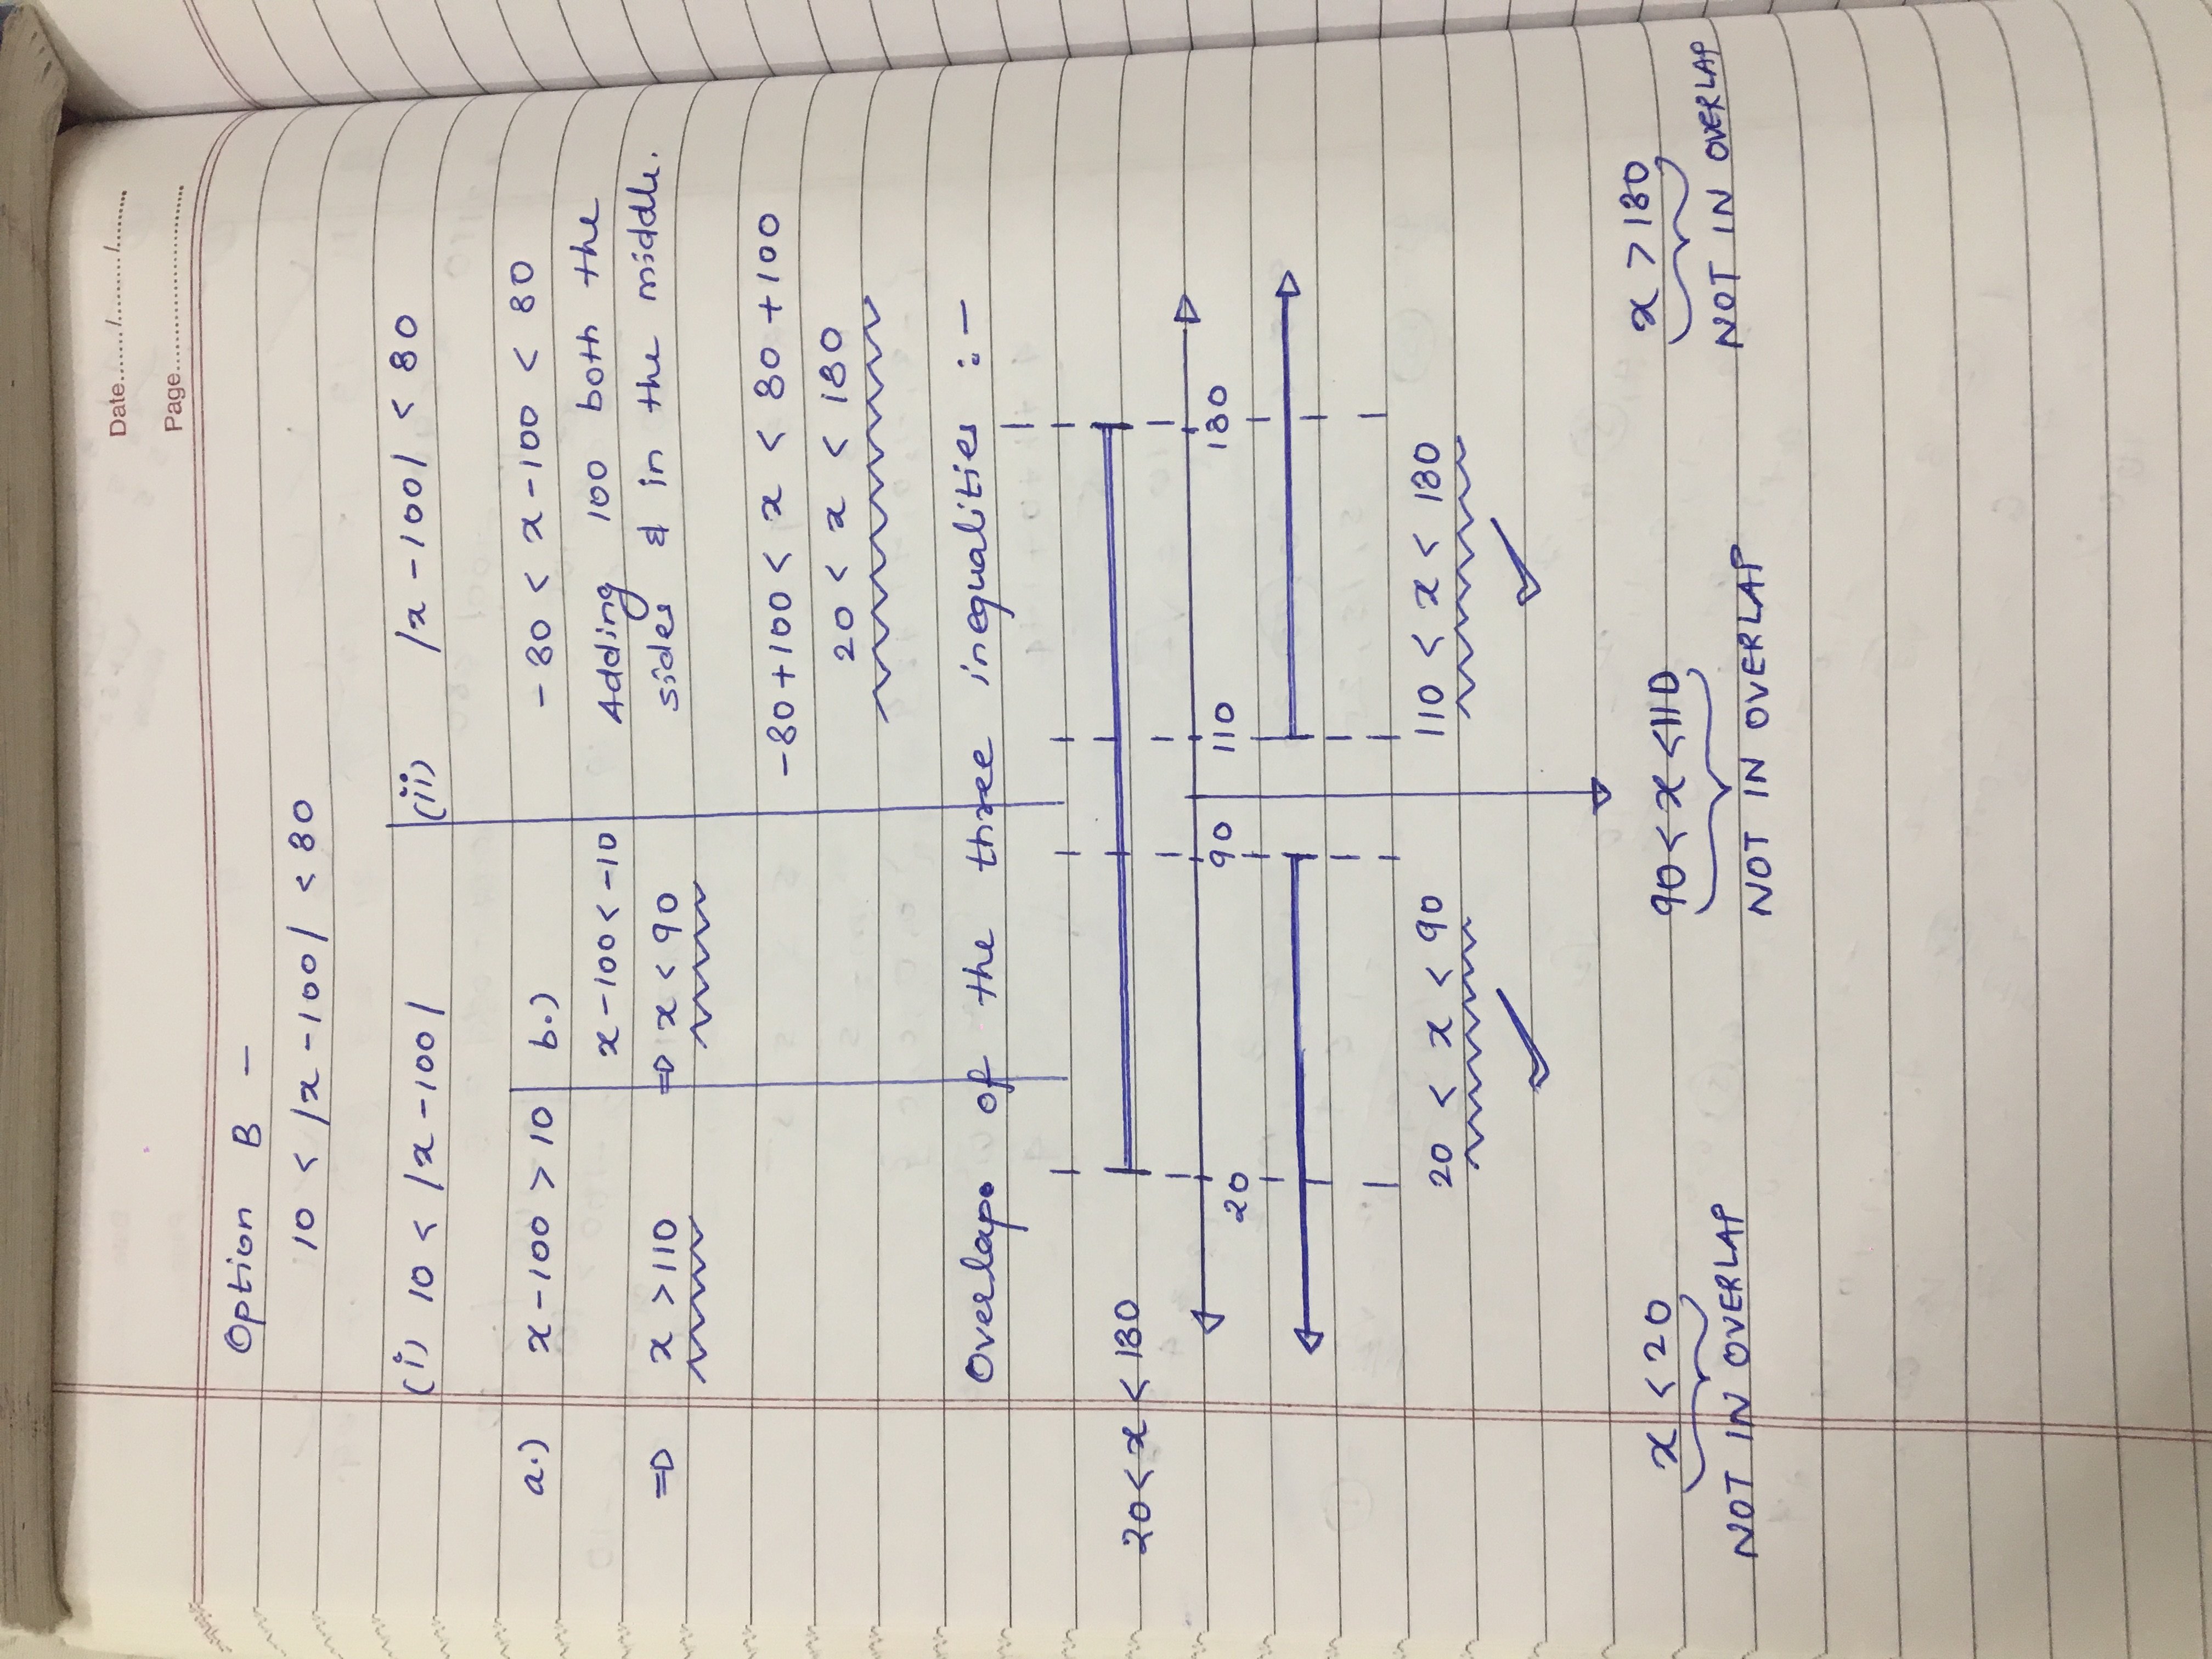 Date....../....../......
Page........................
Option B -
10 < |x-100| < 80
(i) 10 < |x-100|
(ii) |x-100| < 80
a.) x-100 > 10
b.)
-80 < x-100 < 80
x-100 < -10
Adding 100 both the
⇒ x > 110
⇒ x < 90
sides & in the middle.
-80+100 < x < 80+100
20 < x < 180
Overlap of the three inequalities :-
20 < x < 180
20 90 110 180
20 < x < 90
110 < x < 180
x < 20
90 < x < 110
x > 180
NOT IN OVERLAP
NOT IN OVERLAP
NOT IN OVERLAP